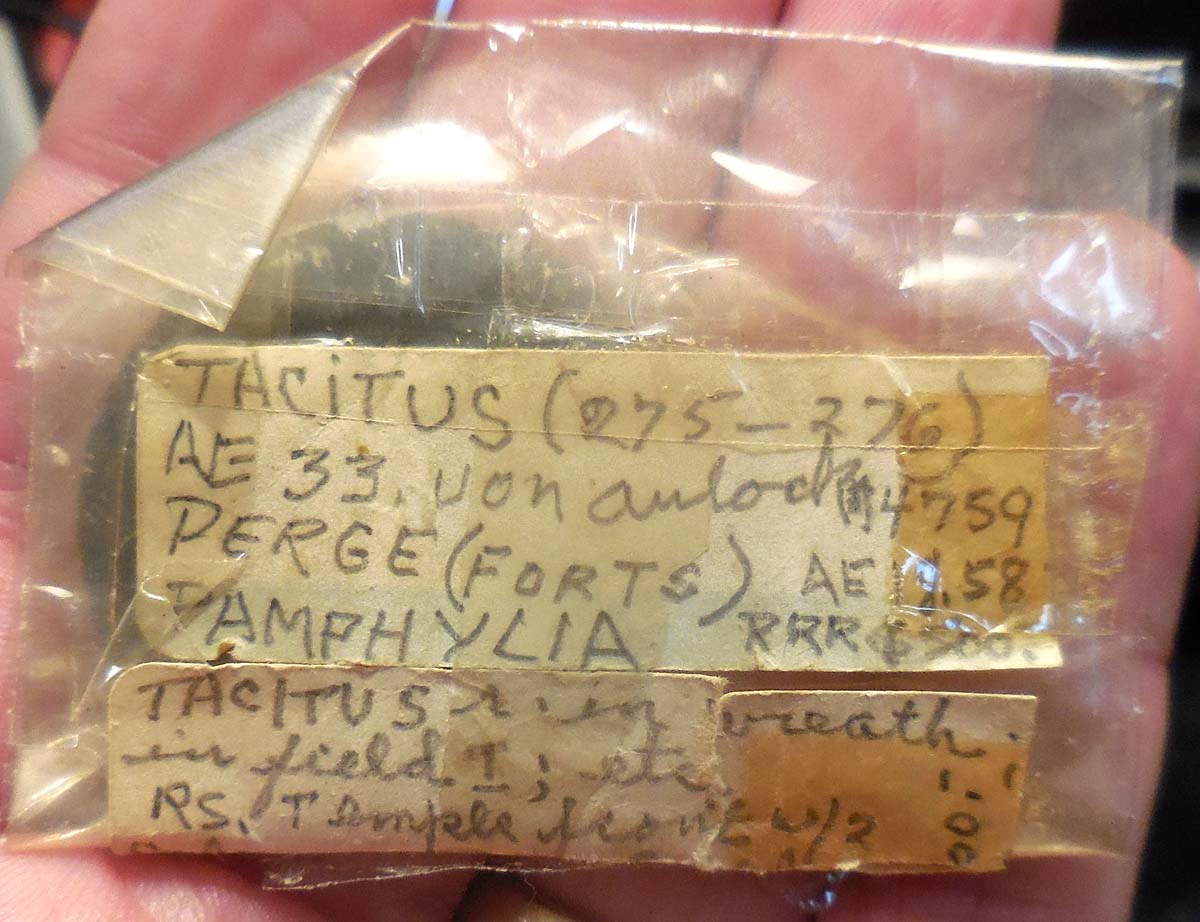 TACITUS (275-276)
AE 33. von aulock 4759
PERGE (FORTS) AE .58
PAMPHYLIA RRR $
TACITUS r. in wreath.
in field I; etc
RS. Temple front w/2